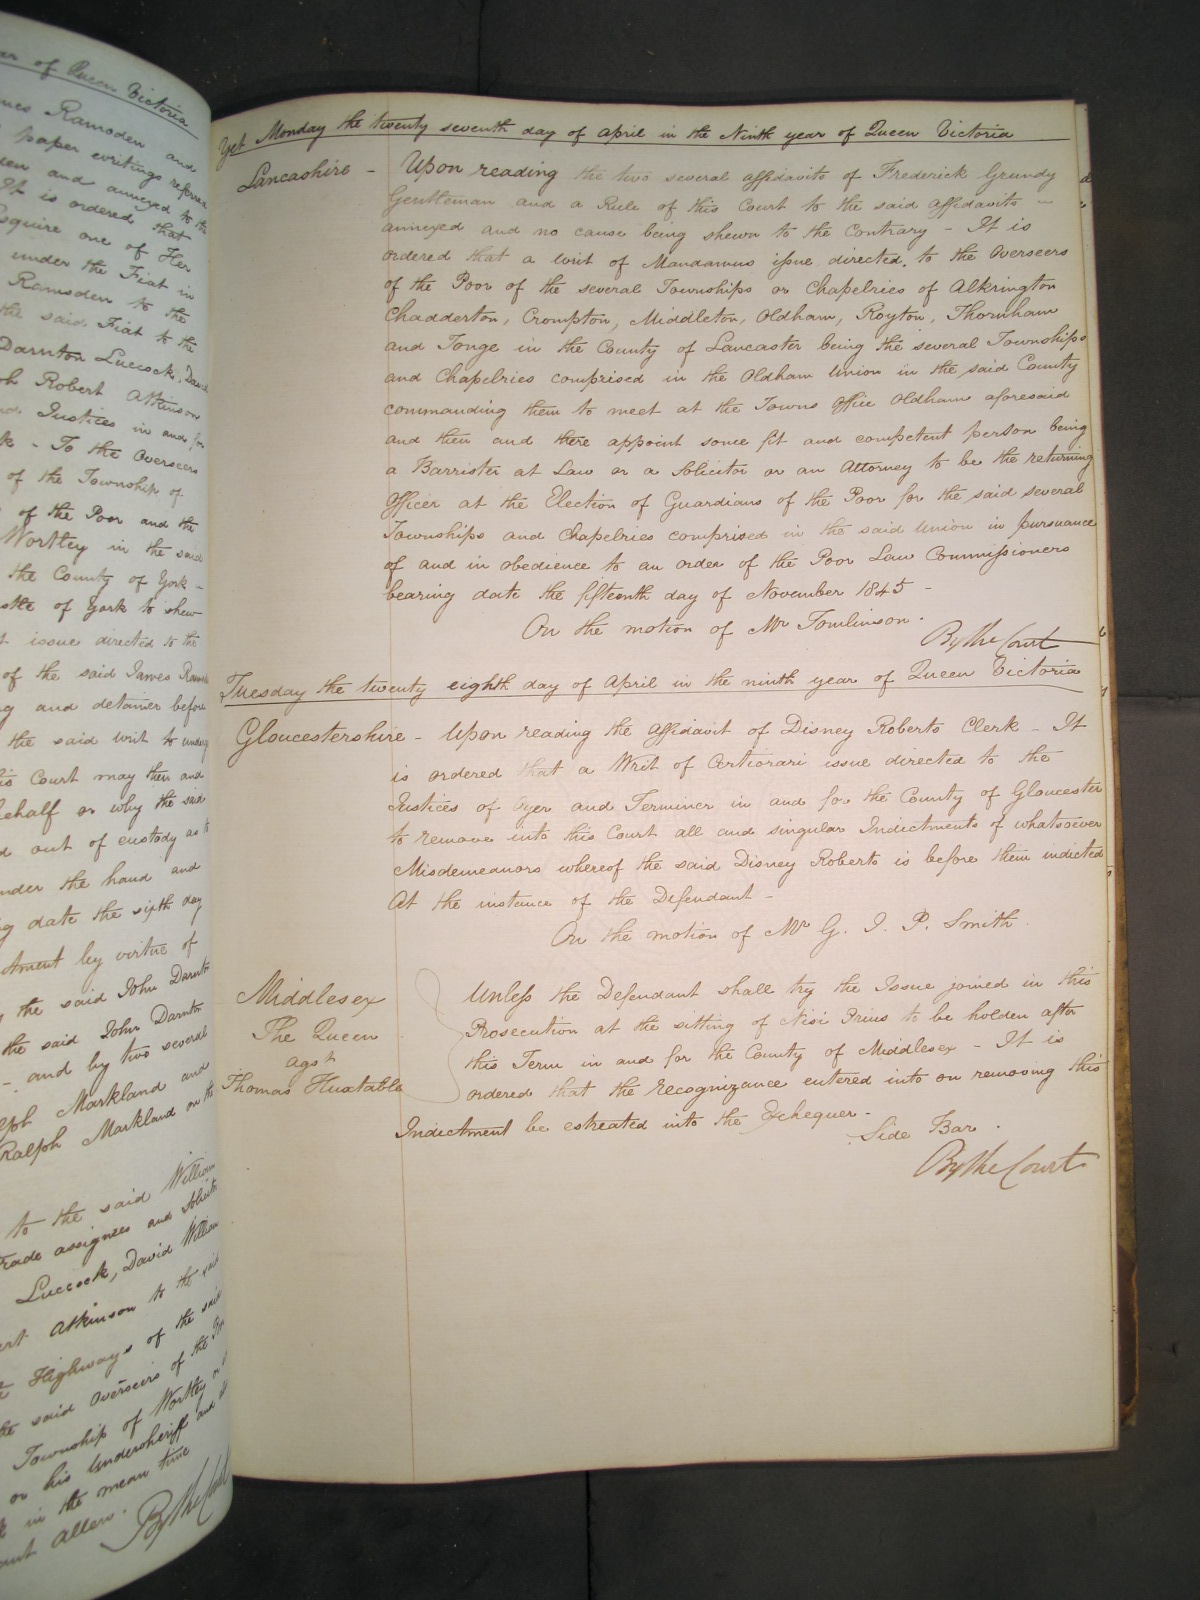 ar of Queen Victoria
mes Ramsden and
paper writings referred
den and annexed to the
It is ordered that
Esquire one of Her
under the Fiat in
Ramsden to the
the said Fiat to the
Darnton Luccock, David
ph Robert Atkinson
Justices in and for
k - To the Overseers
of the Township of
of the Poor and the
Wortley in the said
the County of York -
stle of York to shew
t issue directed to the
of the said James Rams
g and detainer before
the said writ to under
is Court may then and
behalf or why the said
d out of custody as t
nder the hand and
g date the sixth day
itment by virtue of
y the said John Darnto
the said John Darnton
- and by two several
lph Markland and
Ralph Markland on the
to the said William
Trade assignees and Solicito
Luccock, David William
ert Atkinson to the said
Highways of the said
the said Overseers of the Poor
Township of Wortley or
or his Undersheriff and
k in the mean time
Allen.
By the Court
Yet Monday the twenty seventh day of April in the Ninth year of Queen Victoria
Lancashire - Upon reading the two several affidavits of Frederick Grundy
Gentleman and a Rule of this Court to the said affidavits -
annexed and no cause being shewn to the Contrary - It is
ordered that a writ of Mandamus issue directed to the Overseers
of the Poor of the several Townships or Chapelries of Alkrington
Chadderton, Crompton, Middleton, Oldham, Royton, Thornham
and Tonge in the County of Lancaster being the several Townships
and Chapelries comprised in the Oldham Union in the said County
commanding them to meet at the Towns Office Oldham aforesaid
and then and there appoint some fit and competent person being
a Barrister at Law or a Solicitor or an Attorney to be the returning
Officer at the Election of Guardians of the Poor for the said several
Townships and Chapelries comprised in the said Union in pursuance
of and in obedience to an order of the Poor Law Commissioners
bearing date the fifteenth day of November 1845 -
On the motion of Mr Tomlinson.
By the Court
Tuesday the twenty eighth day of April in the ninth year of Queen Victoria
Gloucestershire - Upon reading the Affidavit of Disney Roberts Clerk - It
is ordered that a Writ of Certiorari issue directed to the
Justices of Oyer and Terminer in and for the County of Gloucester
to remove into this Court all and singular Indictments of whatsoever
Misdemeanors whereof the said Disney Roberts is before them indicted
At the instance of the Defendant -
On the motion of Mr G. J. P. Smith.
Middlesex
The Queen
agst
Thomas Huxtable
Unless the Defendant shall try the Issue joined in this
Prosecution at the sitting of Nisi Prius to be holden after
this Term in and for the County of Middlesex - It is
ordered that the recognizance entered into on removing this
Indictment be estreated into the Exchequer -
Side Bar.
By the Court